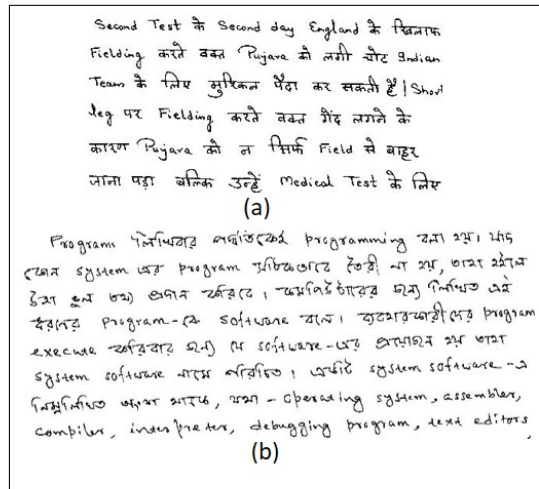 Second Test के Second day England के खिलाफ
Fielding करते वक्त Pujara को लगी चोट Indian
Team के लिए मुश्किल पैदा कर सकती है | Short
leg पर Fielding करते वक्त गेंद लगने के
कारण Pujara को न सिर्फ Field से बाहर
जाना पड़ा बल्कि उन्हें Medical Test के लिए
(a)
Program লিখিবার পদ্ধতিকেই programming বলা হয়। যদি
কোন system এর program সঠিকভাবে তৈরী না হয়, তাহা হইলে
উহা ভুল তথ্য প্রদান করিবে। কমপিউটারের জন্য লিখিত এই
ধরনের program-কে software বলে। ব্যবহারকারীদের program
execute করিবার জন্য যে software-এর প্রয়োজন হয় তাহা
system software নামে পরিচিত। একটি system software-এ
নিম্নলিখিত অংশ থাকে, যথা - operating system, assembler,
compiler, interpreter, debugging program, text editors,
(b)